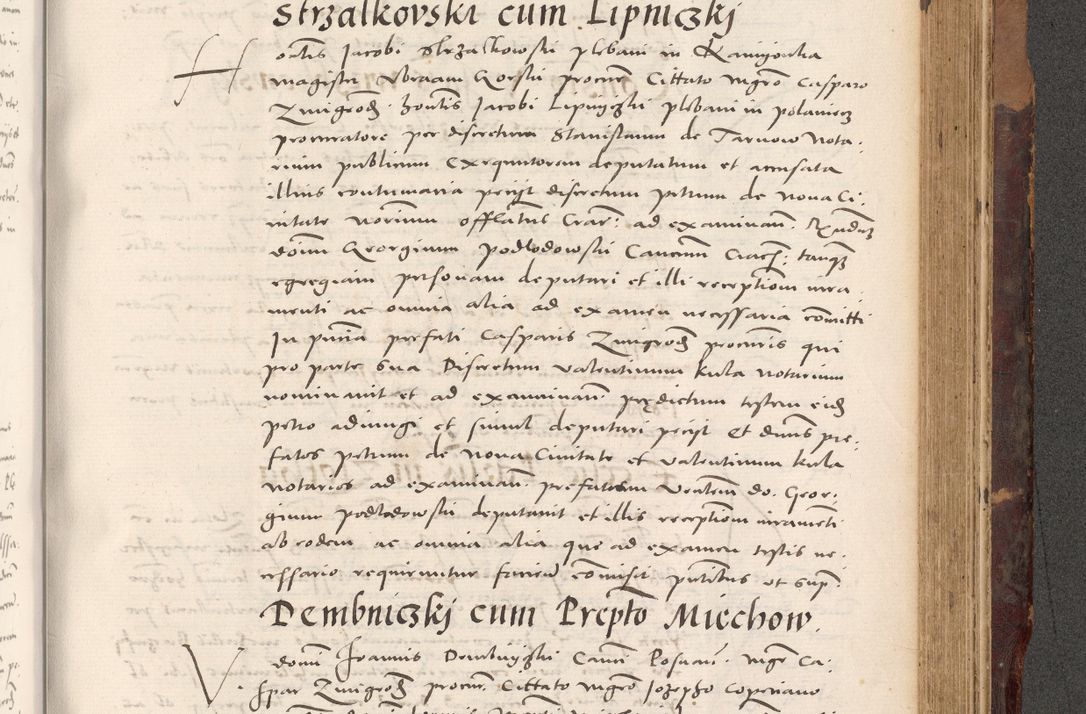 Strzalkovski cum Lipniczkj
Hontis Jacobi Strzalkowski plebani in Kamyonka
magister Abraam Gorski procur. Cittato mgro Casparo
Zmigrod. hontis Jacobi Lipnyczki plebani in polaniecz
procuratore per discretum Stanislaum de Tarnow Nota-
rium publicum Exequutorem deputatum et accusata
illius contumacia pecijt discretum petrum de nova Ci-
vitate notarium officialatus Crac: ad examinan: Rndum
dominum Georgium podlodowski Canonicum Crac: tanq
egregiam personam deputari et illi receptionem iura-
menti ac omnia alia ad examen necessaria comitti
In pntia prefati Casparis Zmigrod procuris qui
pro parte sua Discretum valentinum kula notarium
nominavit et ad examinan prędictum testem eid
petro adiungi et simul deputari pecijt Et dnus pre-
fatos petrum de Nova Civitate et valentinum kula
notarios ad examinan: prefatum Ventem do. Geor-
gium podlodowski deputavit et illis receptionem iuramenti
ab eodem ac omnia alia que ad examen testis ne-
cessario requiruntur faciend comisit pntibus et sup:
Dembniczkj cum Prepto Miechow.
Vdomini Joannis Dembnyczki Canci Posnan: mgr Ca-
spar Zmigrod procur. Cittato mgro Jozepho Coperiano